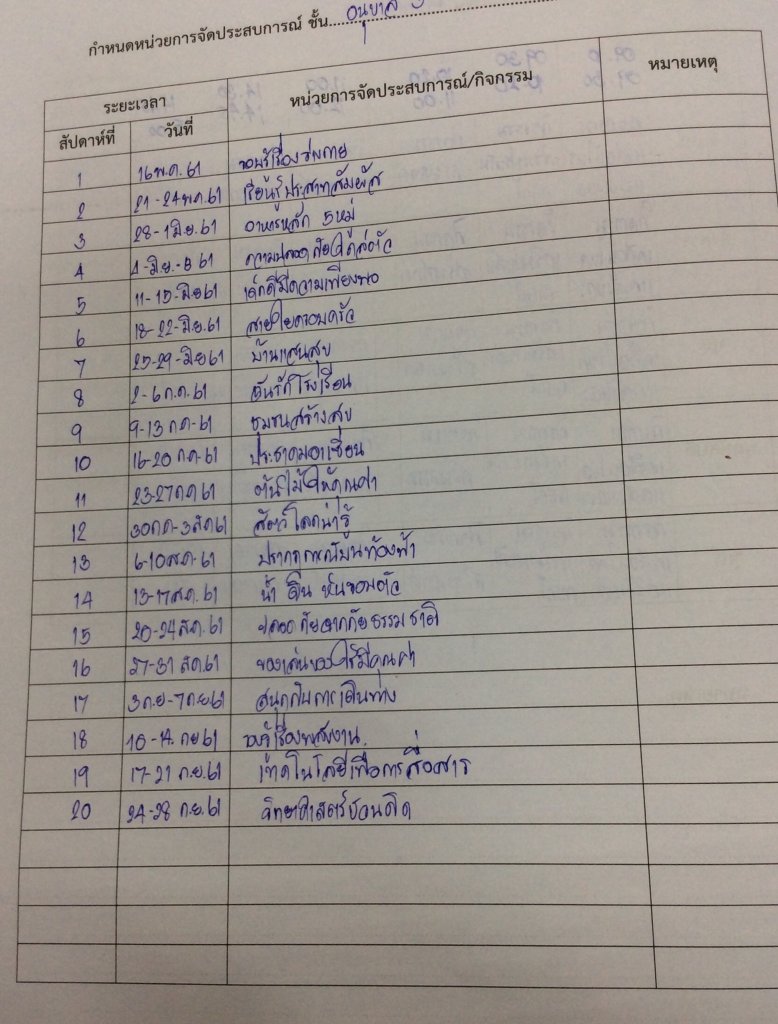 กำหนดหน่วยการจัดประสบการณ์ ชั้น อนุบาล
ระยะเวลา หน่วยการจัดประสบการณ์/กิจกรรม หมายเหตุ
สัปดาห์ที่ วันที่
1 16 พ.ค. 61 รอบรู้เรื่องร่างกาย
2 21 - 24 พ.ค 61 เรียนรู้ประสาทสัมผัส
3 28 - 1 มิ.ย. 61 อาหารหลัก 5 หมู่
4 4 - มิ.ย. - 8 61 ความปลอดภัยใกล้ตัว
5 11 - 15 - มิย 61 เด็กดีมีความเพียงพอ
6 18 - 22 - มิ.ย. 61 สายใยครอบครัว
7 25-29 - มิ.ย 61 บ้านแสนสุข
8 2 - 6 ก.ค. 61 ฉันรักโรงเรียน
9 9 - 13 ก.ค - 61 ชุมชนสร้างสุข
10 16-20 ก.ค - 61 ประชาคมอาเซียน
11 23-27 ก.ค 61 ต้นไม้ให้คุณค่า
12 30 ก.ค - 3 ส.ค 61 สัตว์โลกน่ารู้
13 6-10 ส.ค - 61 ปรากฏการณ์บนท้องฟ้า
14 13-17 ส.ค. 61 น้ำ ดิน หินรอบตัว
15 20-24 ส.ค. 61 ปลอดภัยจากภัยธรรมชาติ
16 27-31 ส.ค. 61 ของเล่นของใช้มีคุณค่า
17 3 ก.ย - 7 ก.ย 61 สนุกกับการเดินทาง
18 10 - 14. ก.ย 61 รอบรู้เรื่องพลังงาน
19 17 - 21 ก.ย. 61 เทคโนโลยีเพื่อการสื่อสาร
20 24-28 ก.ย. 61 วิทยาศาสตร์ชวนคิด